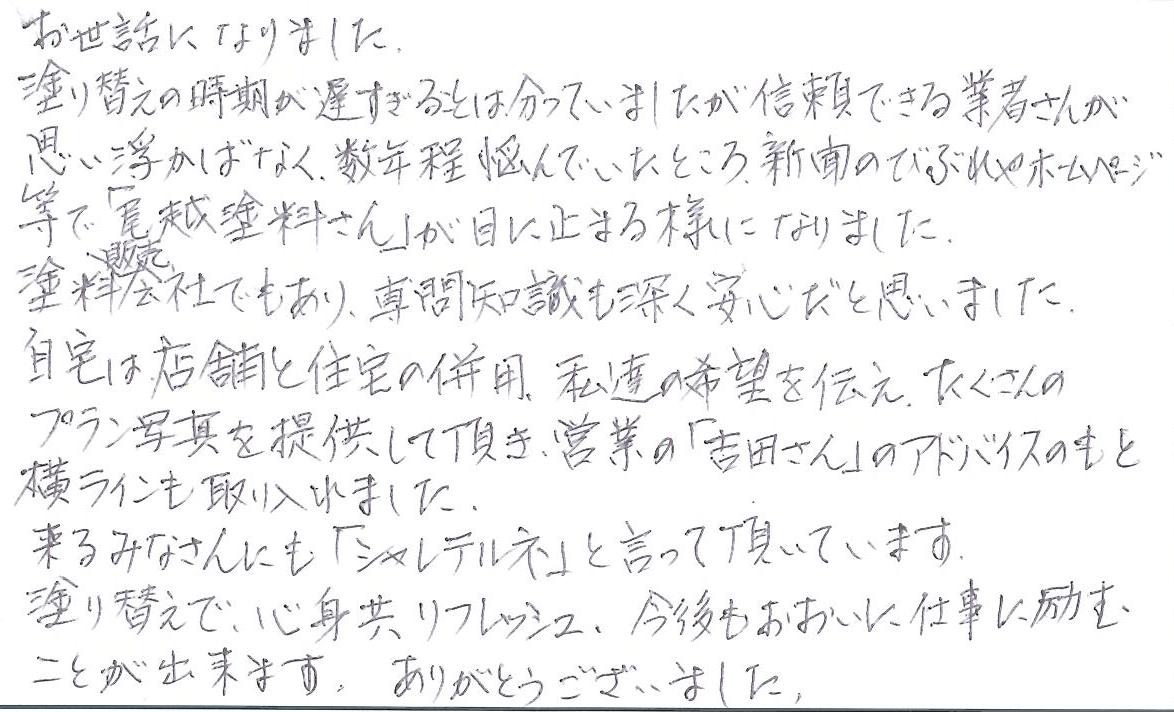 お世話になりました.
塗り替えの時期が遅すぎるとは分っていましたが信頼できる業者さんが
思い浮かばなく、数年程悩んでいたところ、新聞のびぶれやホームページ
等で「尾越塗料さん」が目に止まる様になりました.
塗料販売会社でもあり、専門知識も深く安心だと思いました.
自宅は店舗と住宅の併用、私達の希望を伝え、たくさんの
プラン写真を提供して頂き、営業の「吉田さん」のアドバイスのもと
横ラインも取り入れました.
来るみなさんにも「シャレテルネ」と言って頂いています.
塗り替えで、心身共リフレッシュ、今後もおおいに仕事に励む、
ことが出来ます. ありがとうございました.